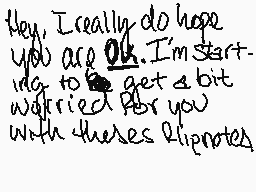 Hey, I really do hope
you are Ok. I'm start-
ing to get a bit
worried for you
with theses flipnotes